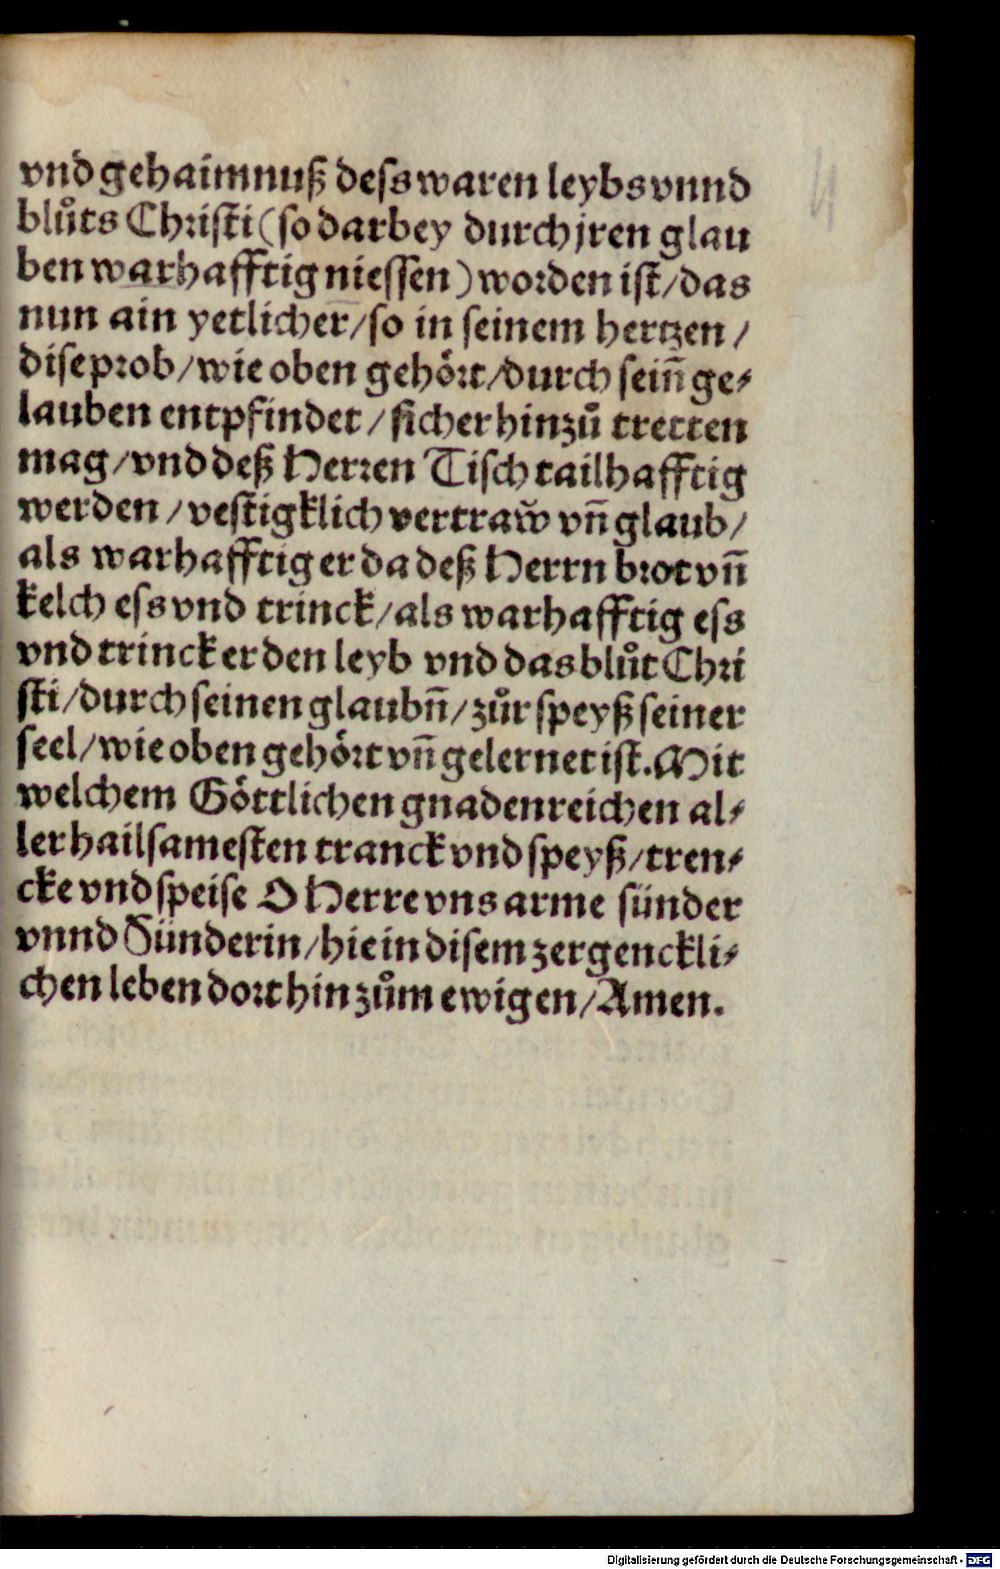 vnd gehaimnuß dess waren leybs vnnd
blůts Christi (so darbey durch jren glau
ben warhafftig niessen) worden ist / das
nun ain yetlicher / so in seinem hertzen /
dise prob / wie oben gehört / durch sein̄ ge⸗
lauben entpfindet / sicher hinzů tretten
mag / vnd deß Herren Tisch tailhafftig
werden / vestigklich vertraw̆ vn̄ glaub /
als warhafftig er da deß Herrn brot vn̄
kelch ess vnd trinck / als warhafftig ess
vnd trinck er den leyb vnd das blůt Chri
sti / durch seinen glaubn̄ / zůr speyß seiner
seel / wie oben gehört vn̄ gelernet ist. Mit
welchem Göttlichen gnadenreichen al⸗
ler hailsamesten tranck vnd speyß / tren⸗
cke vnd speise O Herre vns arme sünder
vnnd Sünderin / hie in disem zergenckli⸗
chen leben dort hin zům ewigen / Amen.
Digitalisierung gefördert durch die Deutsche Forschungsgemeinschaft - DFG